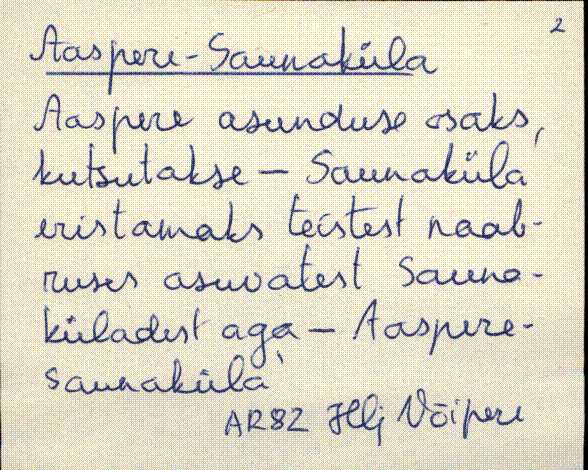 2
Aaspere-Saunaküla
Aaspere asunduse osaks,
kutsutakse – Saunaküla
eristamaks teistest naab-
ruses asuvatest Sauna-
küladest aga – Aaspere-
saunaküla
AR82 Hlj Võipere